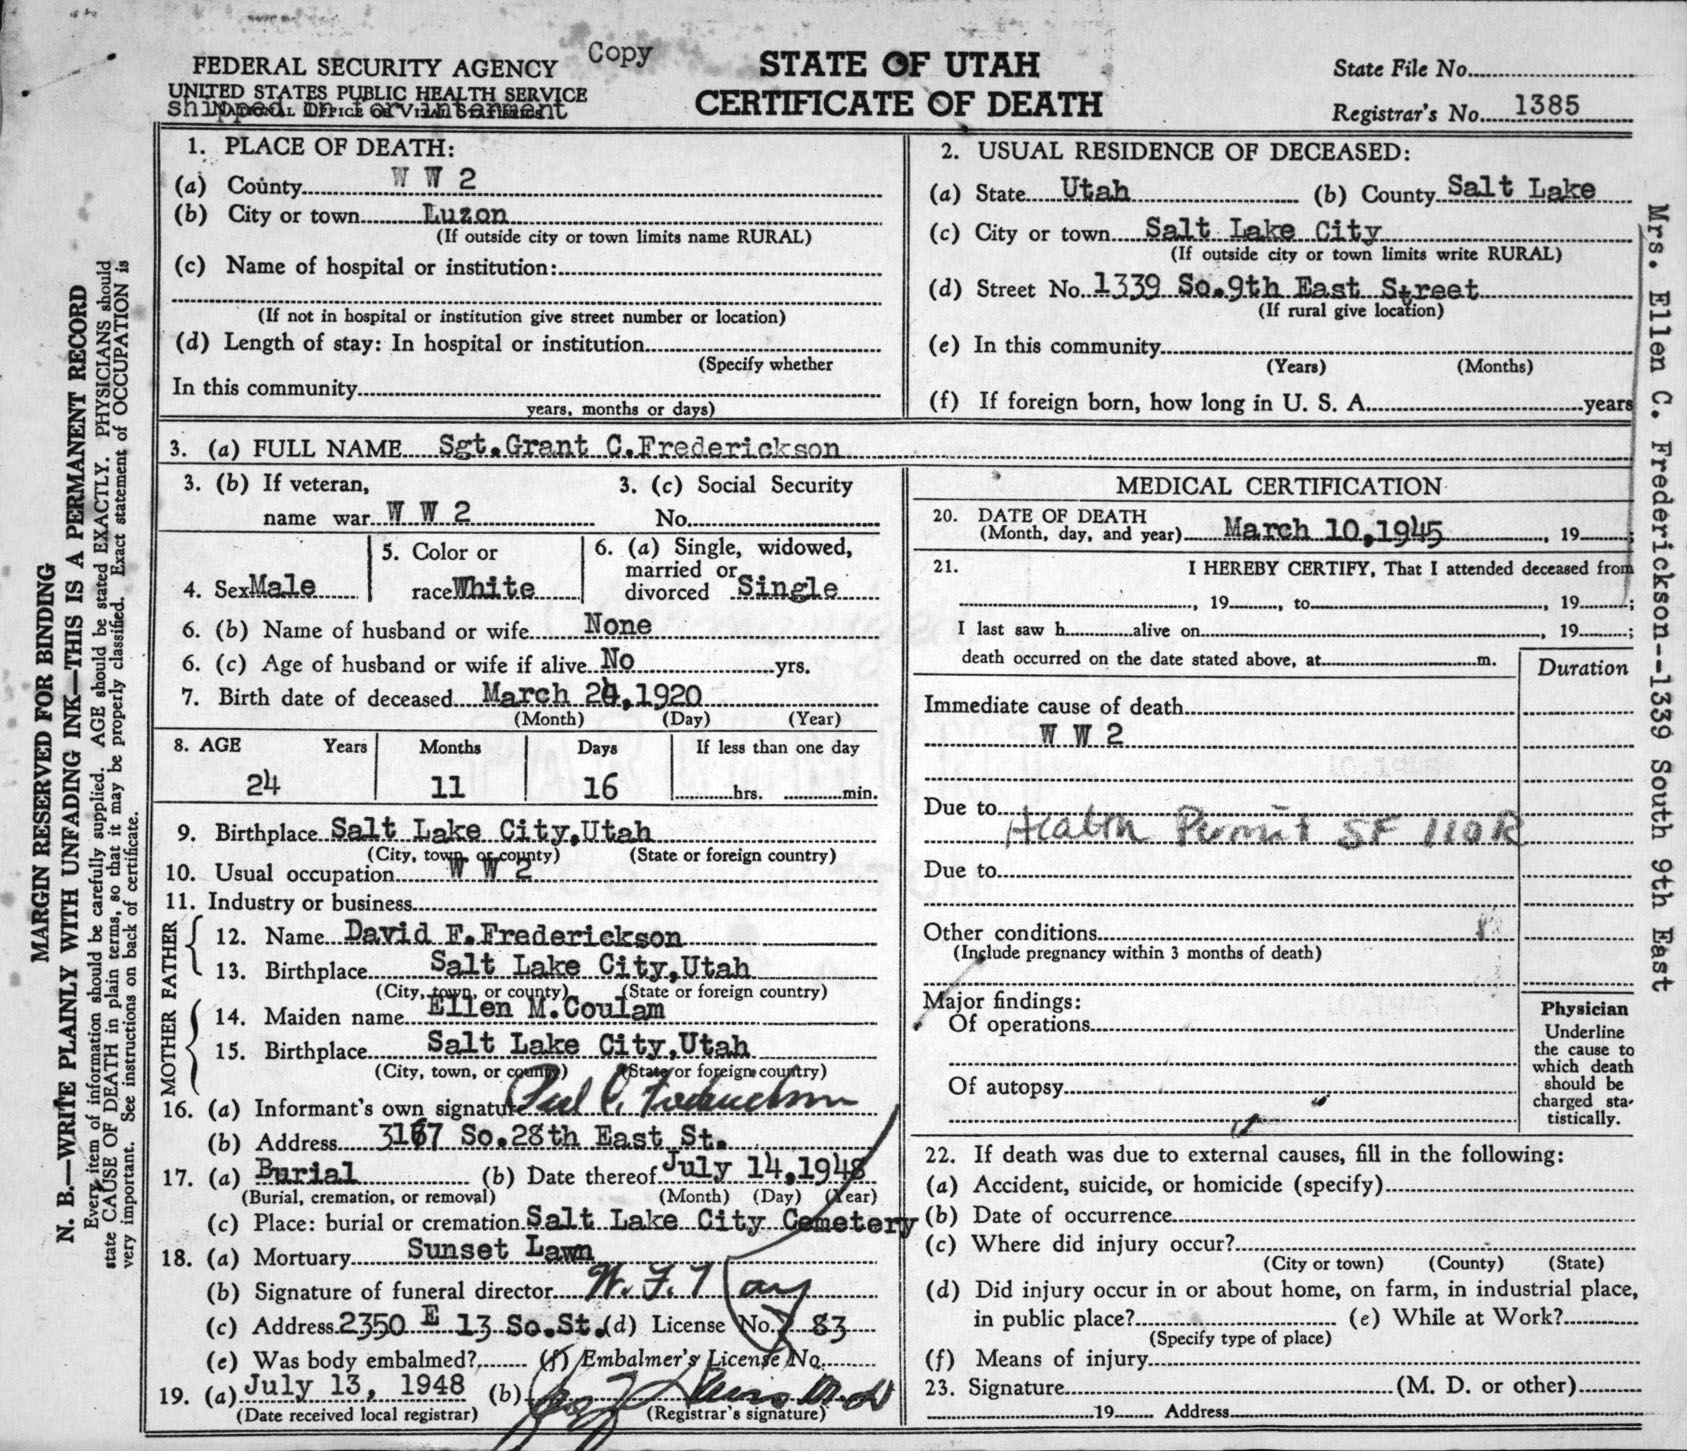 Copy
FEDERAL SECURITY AGENCY
UNITED STATES PUBLIC HEALTH SERVICE
shipped in for interment
STATE OF UTAH
CERTIFICATE OF DEATH
State File No.
Registrar's No. 1385
1. PLACE OF DEATH:
(a) County W W 2
(b) City or town Luzon
(If outside city or town limits name RURAL)
(c) Name of hospital or institution:
(If not in hospital or institution give street number or location)
(d) Length of stay: In hospital or institution
(Specify whether
In this community
years, months or days)
2. USUAL RESIDENCE OF DECEASED:
(a) State Utah (b) County Salt Lake
(c) City or town Salt Lake City
(If outside city or town limits write RURAL)
(d) Street No. 1339 So.9th East Street
(If rural give location)
(e) In this community
(Years) (Months)
(f) If foreign born, how long in U. S. A. years
3. (a) FULL NAME Sgt.Grant C.Frederickson
3. (b) If veteran,
name war W W 2
3. (c) Social Security
No.
4. Sex Male
5. Color or
race White
6. (a) Single, widowed,
married or
divorced Single
6. (b) Name of husband or wife None
6. (c) Age of husband or wife if alive No yrs.
7. Birth date of deceased March 24,1920
(Month) (Day) (Year)
8. AGE Years Months Days If less than one day
24 11 16 hrs. min.
9. Birthplace Salt Lake City,Utah
(City, town, or county) (State or foreign country)
10. Usual occupation W W 2
11. Industry or business
FATHER
12. Name David F.Frederickson
13. Birthplace Salt Lake City,Utah
(City, town, or county) (State or foreign country)
MOTHER
14. Maiden name Ellen M.Coulam
15. Birthplace Salt Lake City,Utah
(City, town, or county) (State or foreign country)
16. (a) Informant's own signature C. Frederickson
(b) Address 3167 So.28th East St.
17. (a) Burial (b) Date thereof July 14,1948
(Burial, cremation, or removal) (Month) (Day) (Year)
(c) Place: burial or cremation Salt Lake City Cemetery
18. (a) Mortuary Sunset Lawn
(b) Signature of funeral director W. F.
(c) Address 2350 E 13 So.St. (d) License No. 83
(e) Was body embalmed? (f) Embalmer's License No.
19. (a) July 13, 1948 (b)
(Date received local registrar) (Registrar's signature)
MEDICAL CERTIFICATION
20. DATE OF DEATH
(Month, day, and year) March 10,1945, 19 ;
21. I HEREBY CERTIFY, That I attended deceased from
, 19 , to , 19 ;
I last saw h alive on , 19 ;
death occurred on the date stated above, at m.
Duration
Immediate cause of death
W W 2
Due to
Health Permit SF 110R
Due to
Other conditions
(Include pregnancy within 3 months of death)
Major findings:
Of operations
Of autopsy
Physician
Underline
the cause to
which death
should be
charged sta-
tistically.
22. If death was due to external causes, fill in the following:
(a) Accident, suicide, or homicide (specify)
(b) Date of occurrence
(c) Where did injury occur?
(City or town) (County) (State)
(d) Did injury occur in or about home, on farm, in industrial place,
in public place? (e) While at Work?
(Specify type of place)
(f) Means of injury
23. Signature (M. D. or other)
19 Address
MARGIN RESERVED FOR BINDING
N. B.—WRITE PLAINLY WITH UNFADING INK—THIS IS A PERMANENT RECORD
Every item of information should be carefully supplied. AGE should be stated EXACTLY. PHYSICIANS should
state CAUSE OF DEATH in plain terms, so that it may be properly classified. Exact statement of OCCUPATION is
very important. See instructions on back of certificate.
Mrs. Ellen C. Frederickson--1339 South 9th East